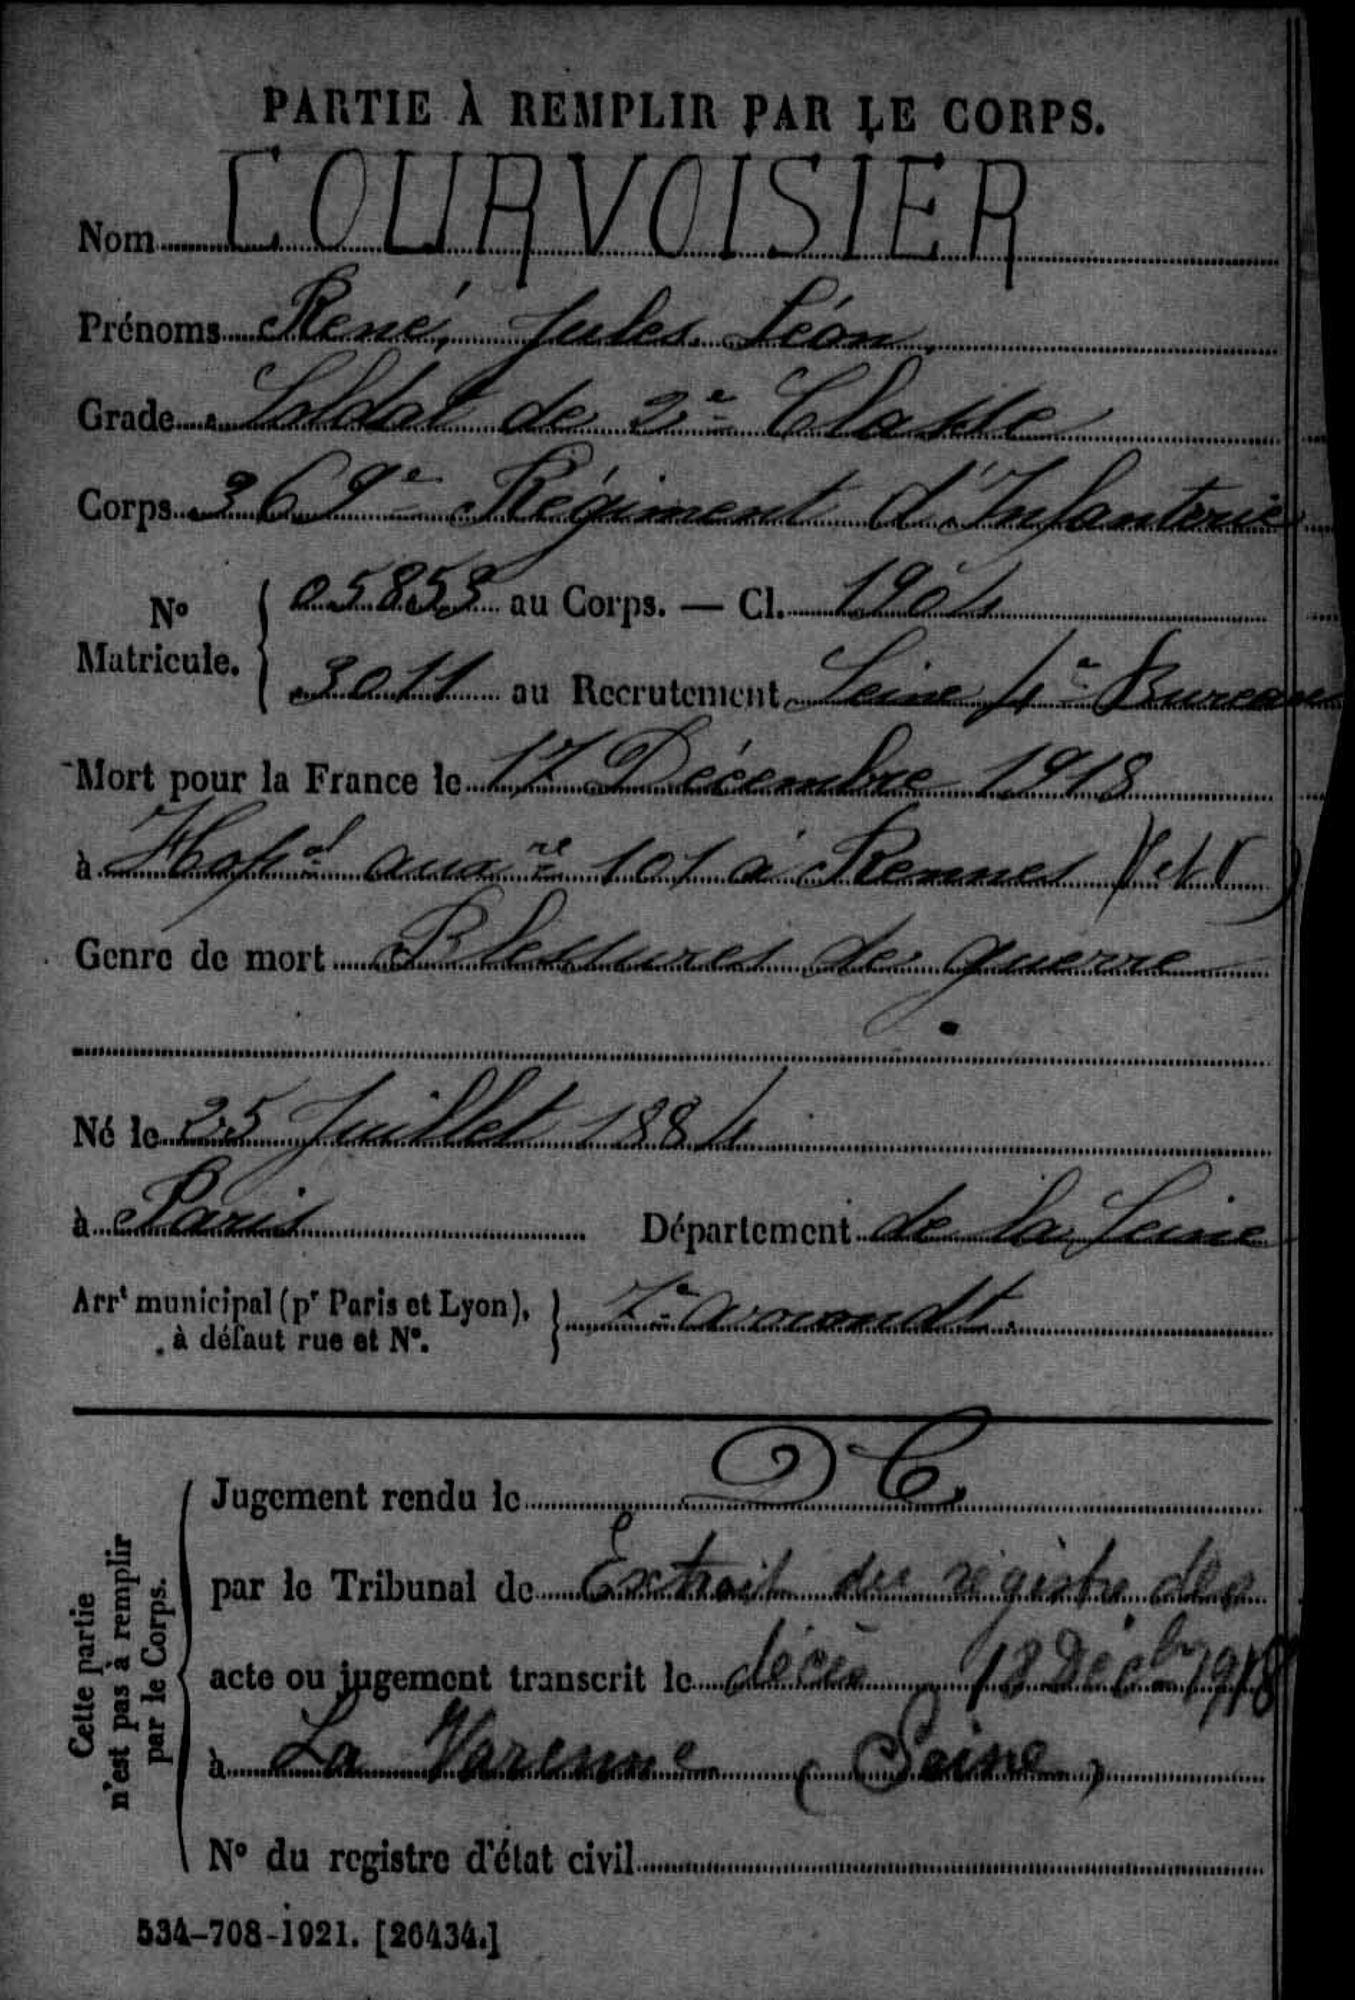 PARTIE À REMPLIR PAR LE CORPS.
Nom COURVOISIER
Prénoms René, Jules Léon
Grade Soldat de 2e Classe
Corps 369e Régiment d'Infanterie
No Matricule. { 05853 au Corps. — Cl. 1904
3011 au Recrutement Seine 4e Bureau
Mort pour la France le 17 Décembre 1918
à Hopal auxre 101 à Rennes (I et V)
Genre de mort Blessures de guerre
Né le 25 Juillet 1884
à Paris Département de la Seine
Arrt municipal (pr Paris et Lyon), à défaut rue et No. } 7e arrondt.
Cette partie n'est pas à remplir par le Corps.
Jugement rendu le D C
par le Tribunal de Extrait du registre des
acte ou jugement transcrit le décès 18 Décbre 1918
à La Varenne (Seine)
No du registre d'état civil
534-708-1921. [26434.]